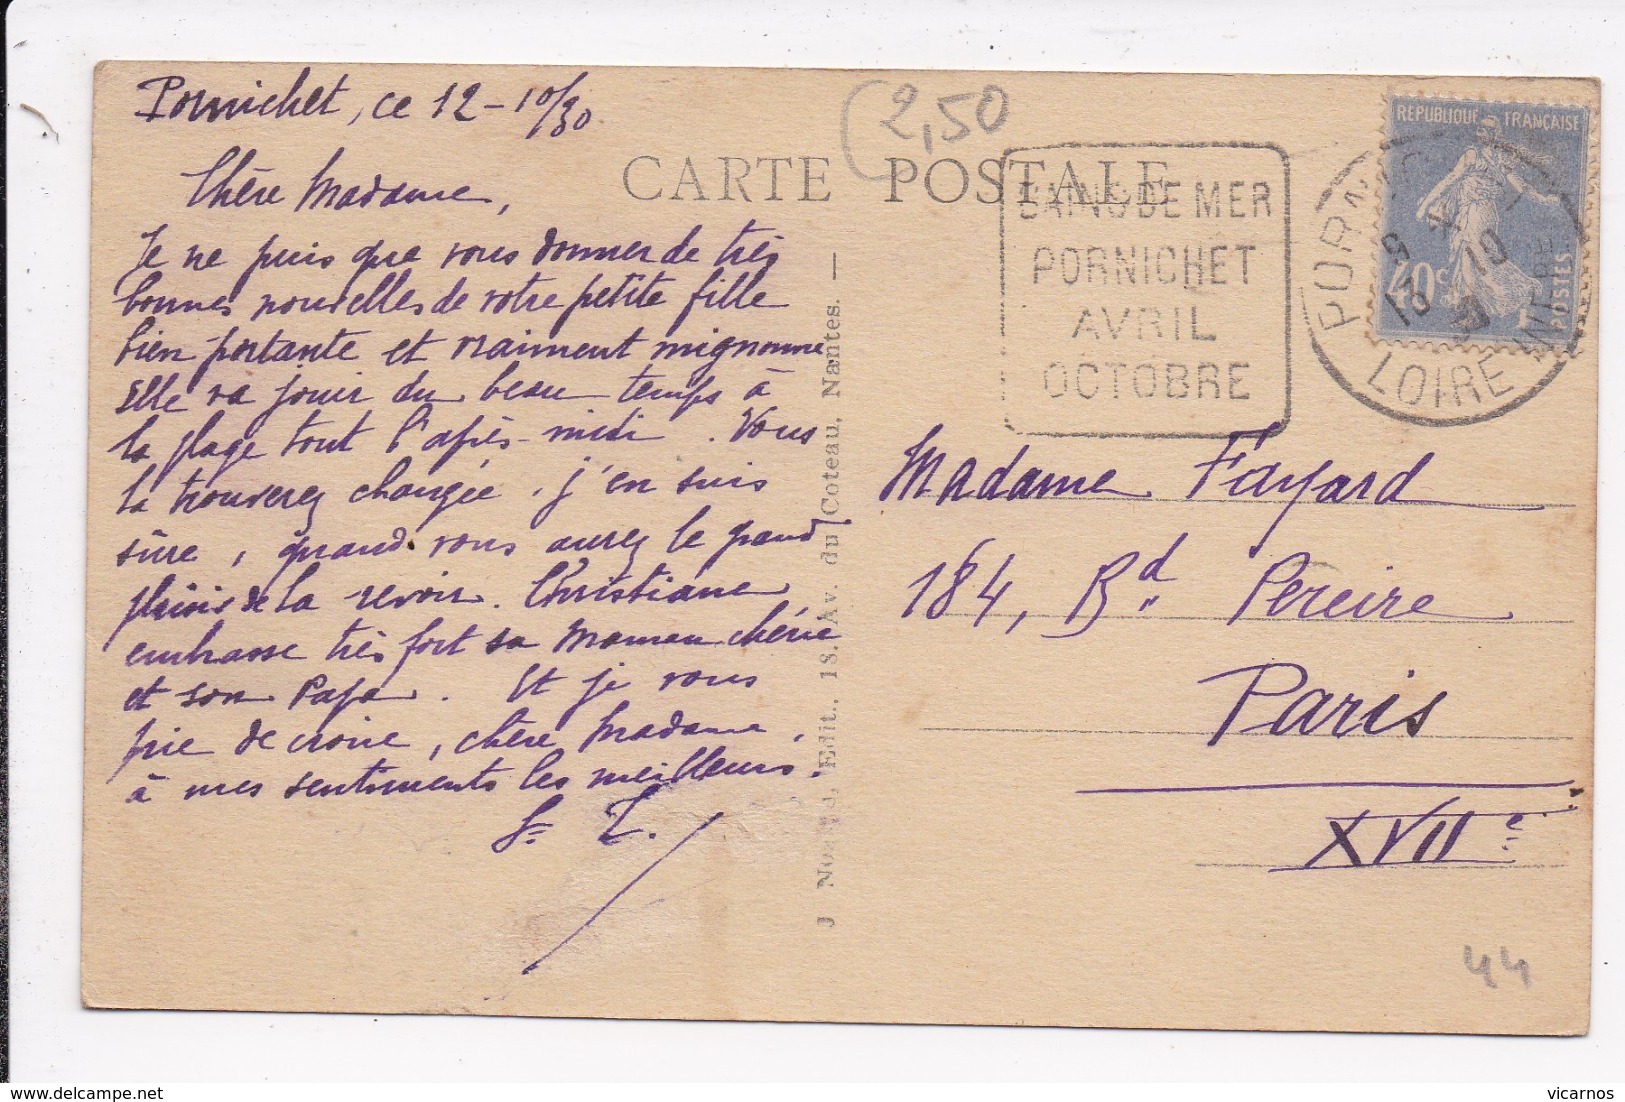 Pornichet, ce 12-10/30
Chère Madame,
Je ne puis que vous donner de très
bonnes nouvelles de votre petite fille
bien portante et vraiment mignonne
Elle va jouir du beau temps à
la plage tout l'après-midi. Vous
la trouverez changée, j'en suis
sûre, quand vous aurez le grand
plaisir de la revoir. Christiane
embrasse très fort sa Maman chérie
et son Papa. Et je vous
prie de croire, chère Madame,
à mes sentiments les meilleurs.
(2,50
CARTE POSTALE
BAINS DE MER
PORNICHET
AVRIL
OCTOBRE
REPUBLIQUE FRANÇAISE
40c
POSTES
PORNICHET
LOIRE INFRE
Edit., 18. Av. du Coteau, Nantes. —
Madame Fayard
184, Bd Pereire
Paris
XVIIe
44
delcampe.net
vicarnos